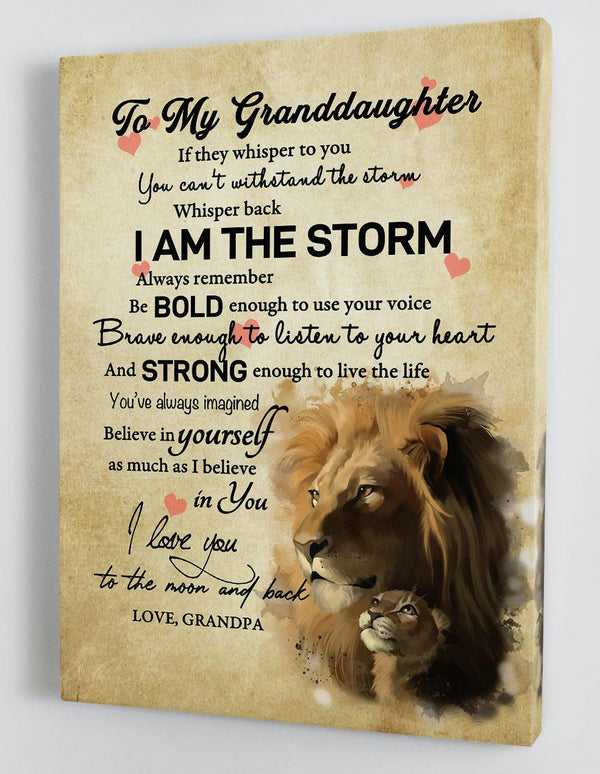 To My Granddaughter
If they whisper to you
You can't withstand the storm
Whisper back
I AM THE STORM
Always remember
Be BOLD enough to use your voice
Brave enough to listen to your heart
And STRONG enough to live the life
You've always imagined
Believe in yourself
as much as I believe
in You
I love you
to the moon and back
LOVE, GRANDPA